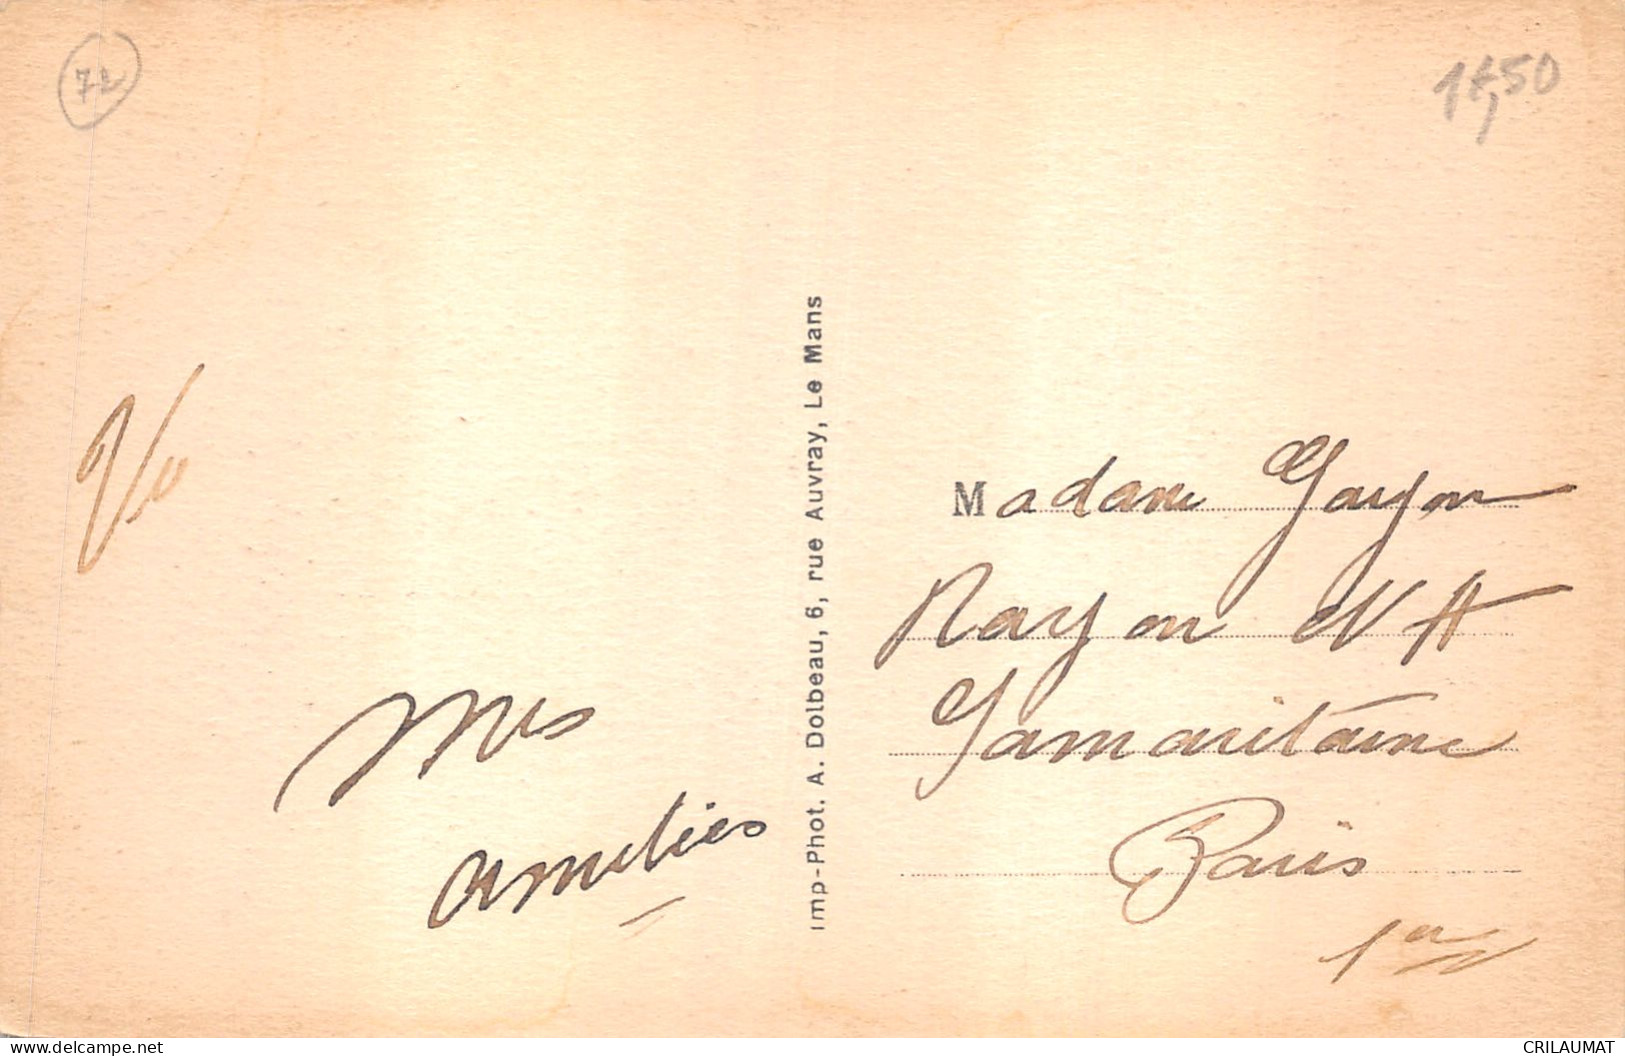 72
1€,50
Mes
amitiés
Imp-Phot. A. Dolbeau, 6, rue Auvray, Le Mans
Madame
Rayon
Samaritaine
Paris
1er
www.delcampe.net
CRILAUMAT